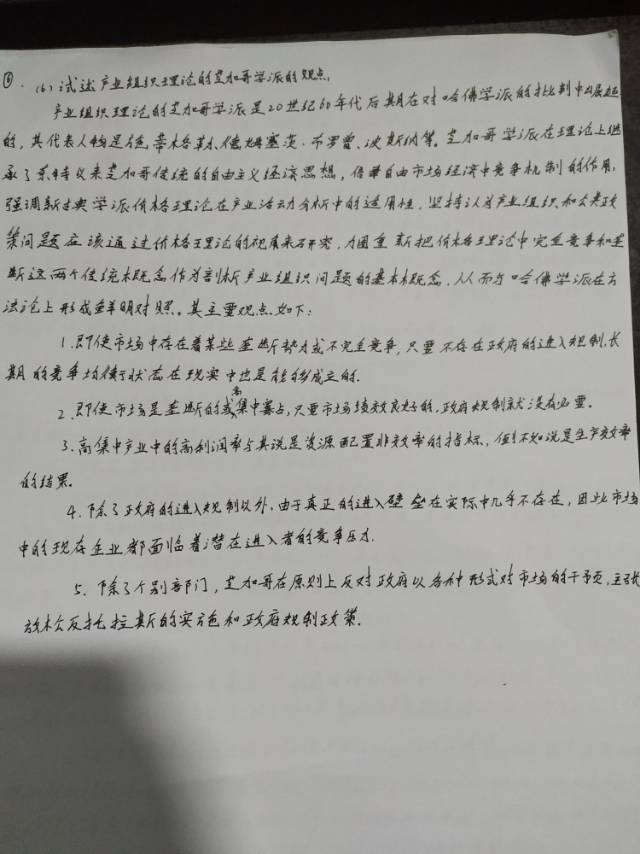 ⑥. (6) 试述产业组织理论的芝加哥学派的观点.
产业组织理论的芝加哥学派是20世纪60年代后期在对哈佛学派的批判中崛起
的, 其代表人物是 蒂格勒、德姆塞茨、布罗曾、波斯纳等。芝加哥学派在理论上继
承了奈特以来芝加哥传统的自由主义经济思想, 信奉自由市场经济中竞争机制的作用,
强调新古典学派价格理论在产业活动分析中的适用性. 坚持认为产业组织和公共政
策问题应该通过价格理论的视角来研究, 力图重新把价格理论中完全竞争和垄
断这两个传统概念作为剖析产业组织问题的基本概念, 从而与哈佛学派在方
法论上形成鲜明对照。其主要观点如下:
1. 即使市场中存在着某些垄断势力或不完全竞争, 只要不存在政府的进入规制, 长
期的竞争均衡状态在现实中也是能够成立的.
2. 即使市场是垄断的或高集中寡占, 只要市场绩效良好的, 政府规制就没有必要。
3. 高集中产业中的高利润率与其说是资源配置非效率的指标, 倒不如说是生产效率
的结果。
4. 除了政府的进入规制以外. 由于真正的进入壁垒在实际中几乎不存在, 因此市场
中的现存企业都面临着潜在进入者的竞争压力.
5. 除了个别部门, 芝加哥在原则上反对政府以各种形式对市场的干预, 主张
放松反托拉斯的实施和政府规制政策.